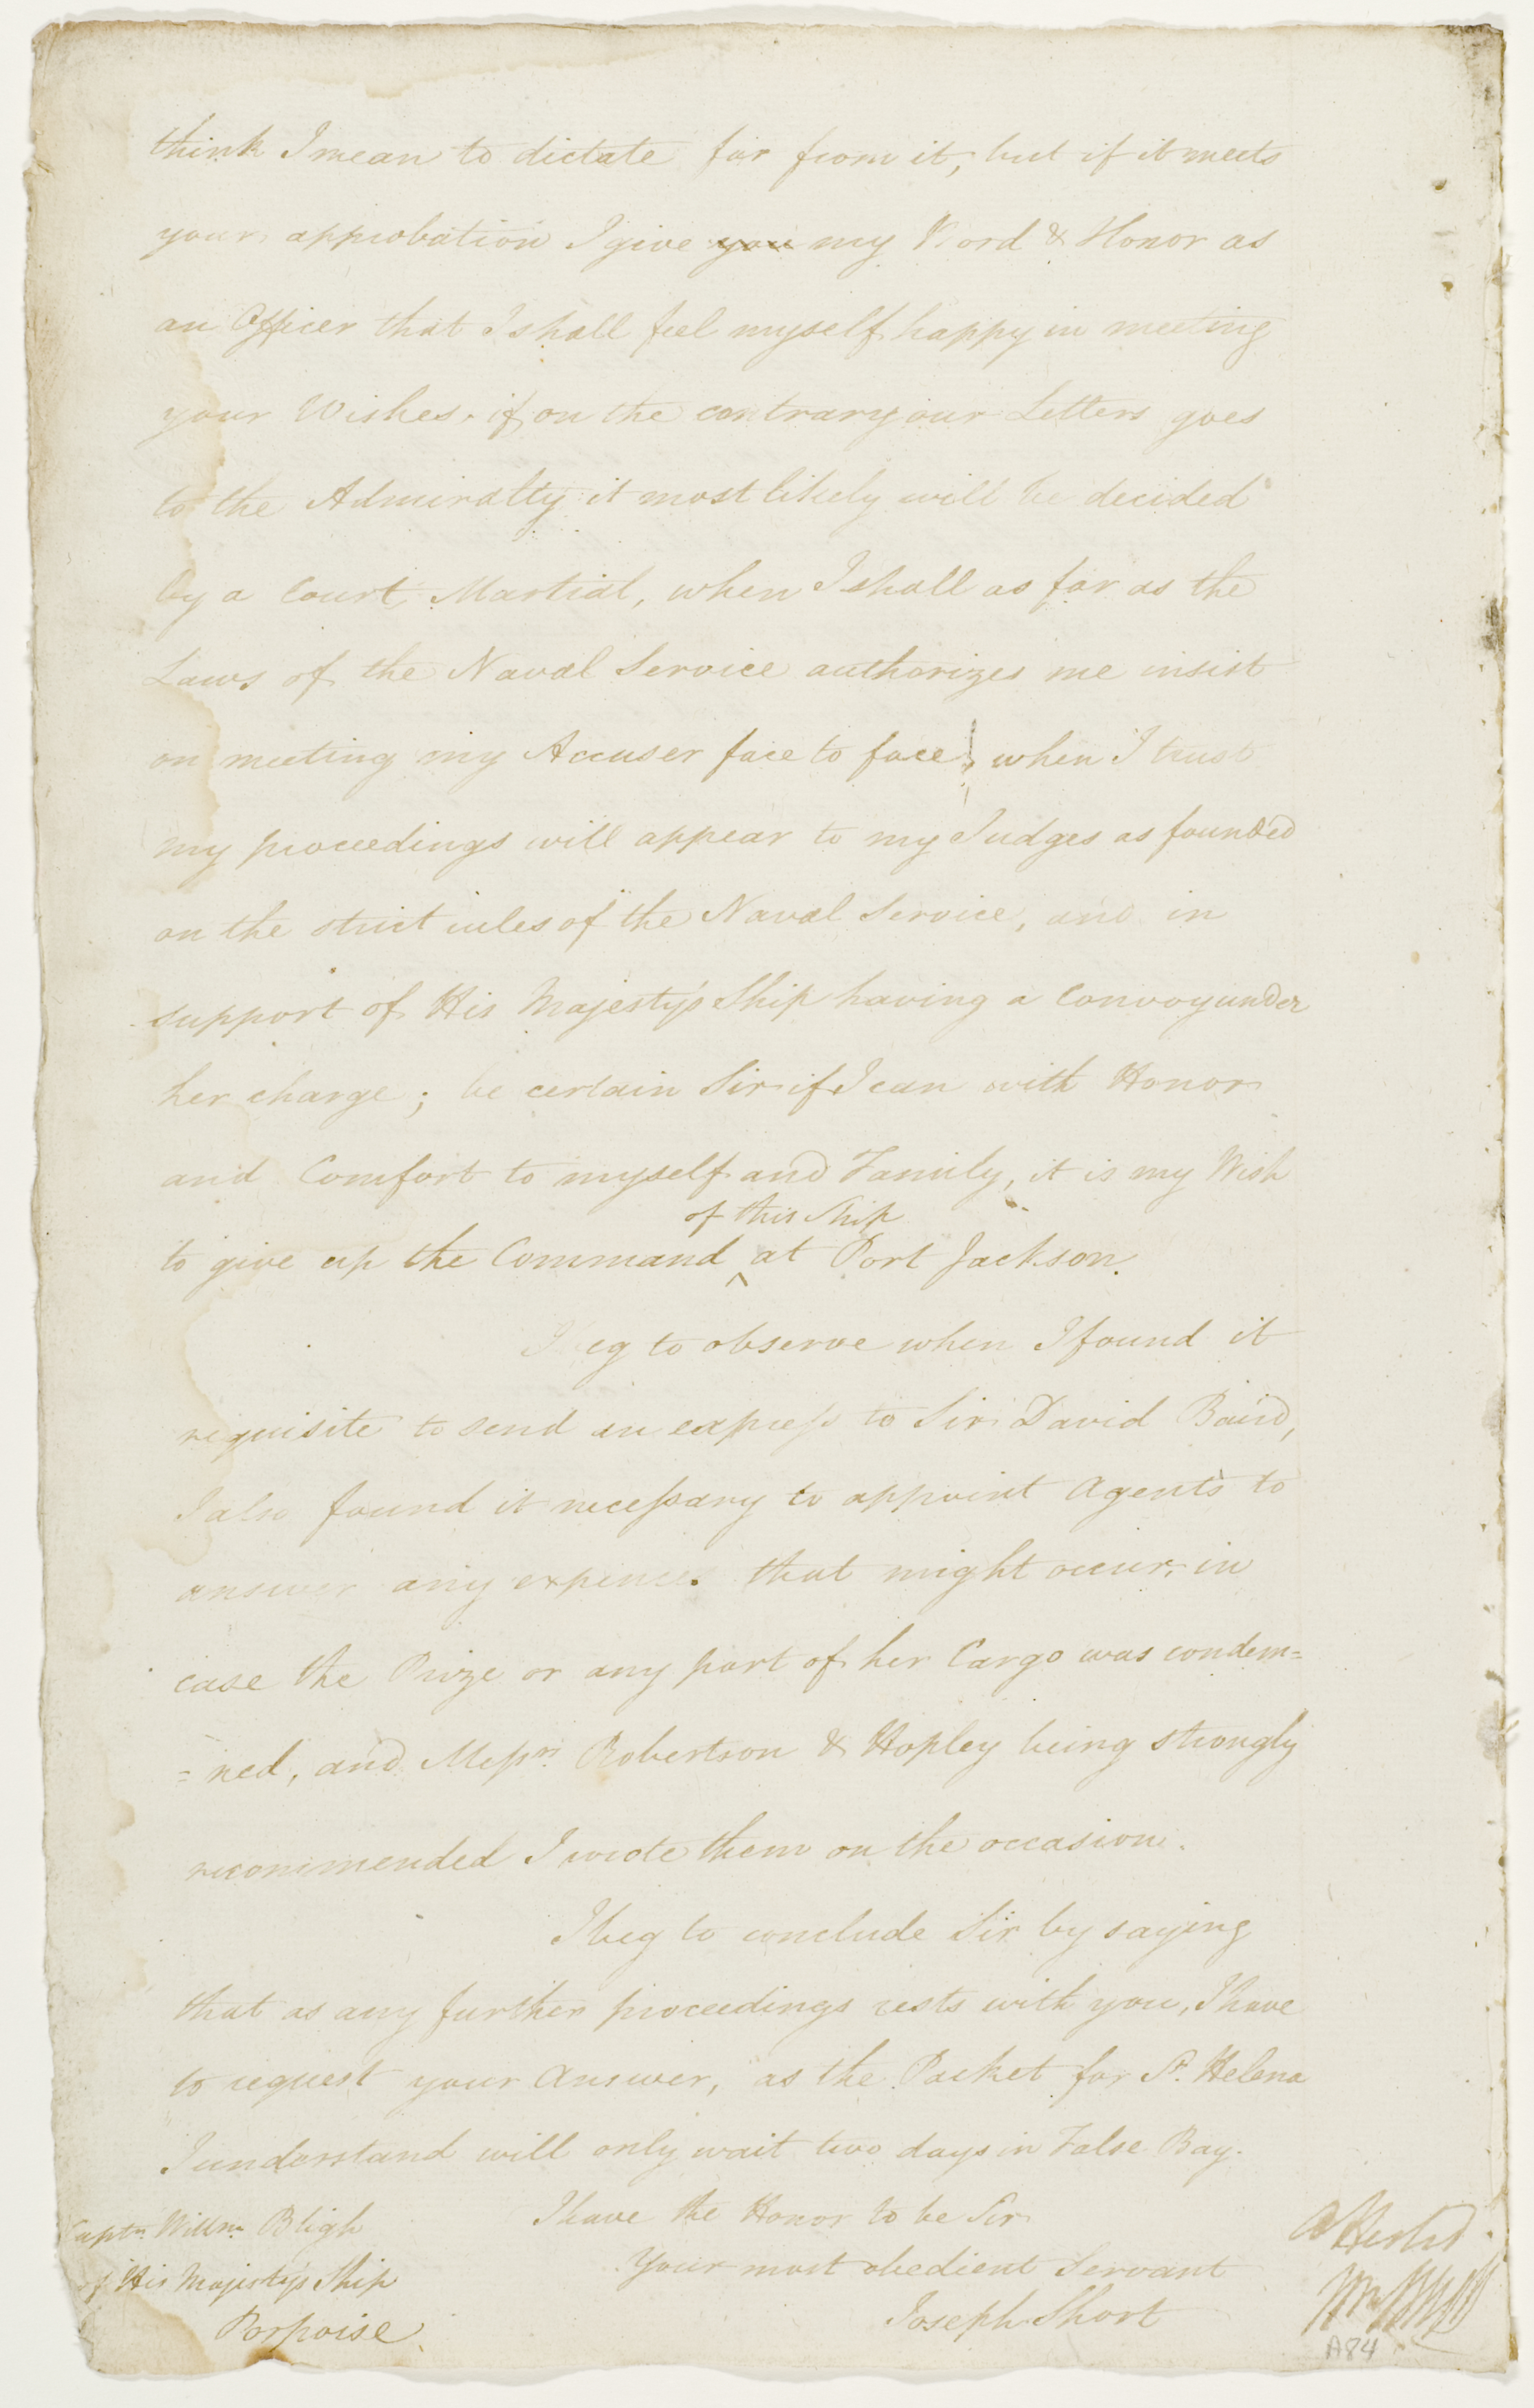 think I mean to dictate far from it, but if it meets
your approbation I give you my Word & Honor as
an Officer that I shall feel myself happy in meeting
your Wishes. if on the contrary our Letters goes
to the Admiralty it most likely will be decided
by a Court Martial, when I shall as far as the
Laws of the Naval Service authorizes me insist
on meeting my Accuser face to face, when I trust
my proceedings will appear to my Judges as founded
on the strict rules of the Naval Service, and in
support of His Majesty's Ship having a Convoy under
her charge; be certain Sir if I can with Honor
and Comfort to myself and Family, it is my Wish
of this Ship
to give up the Command ^ at Port Jackson.
I beg to observe when I found it
requisite to send an express to Sir David Baird,
I also found it necessary to appoint Agents to
answer any expences that might occur, in
case the Prize or any part of her Cargo was condem=
=ned, and Messrs. Robertson & Hopley being strongly
recommended I wrote them on the occasion.
I beg to conclude Sir by saying
that as any further proceedings rests with you, I have
to request your Answer, as the Packet for St. Helena
I understand will only wait two days in False Bay.
I have the Honor to be Sir
Your most obedient Servant
Joseph Short
Captn. Willm. Bligh
of His Majesty's Ship
Porpoise.
Attested.
Wm Bligh
A84